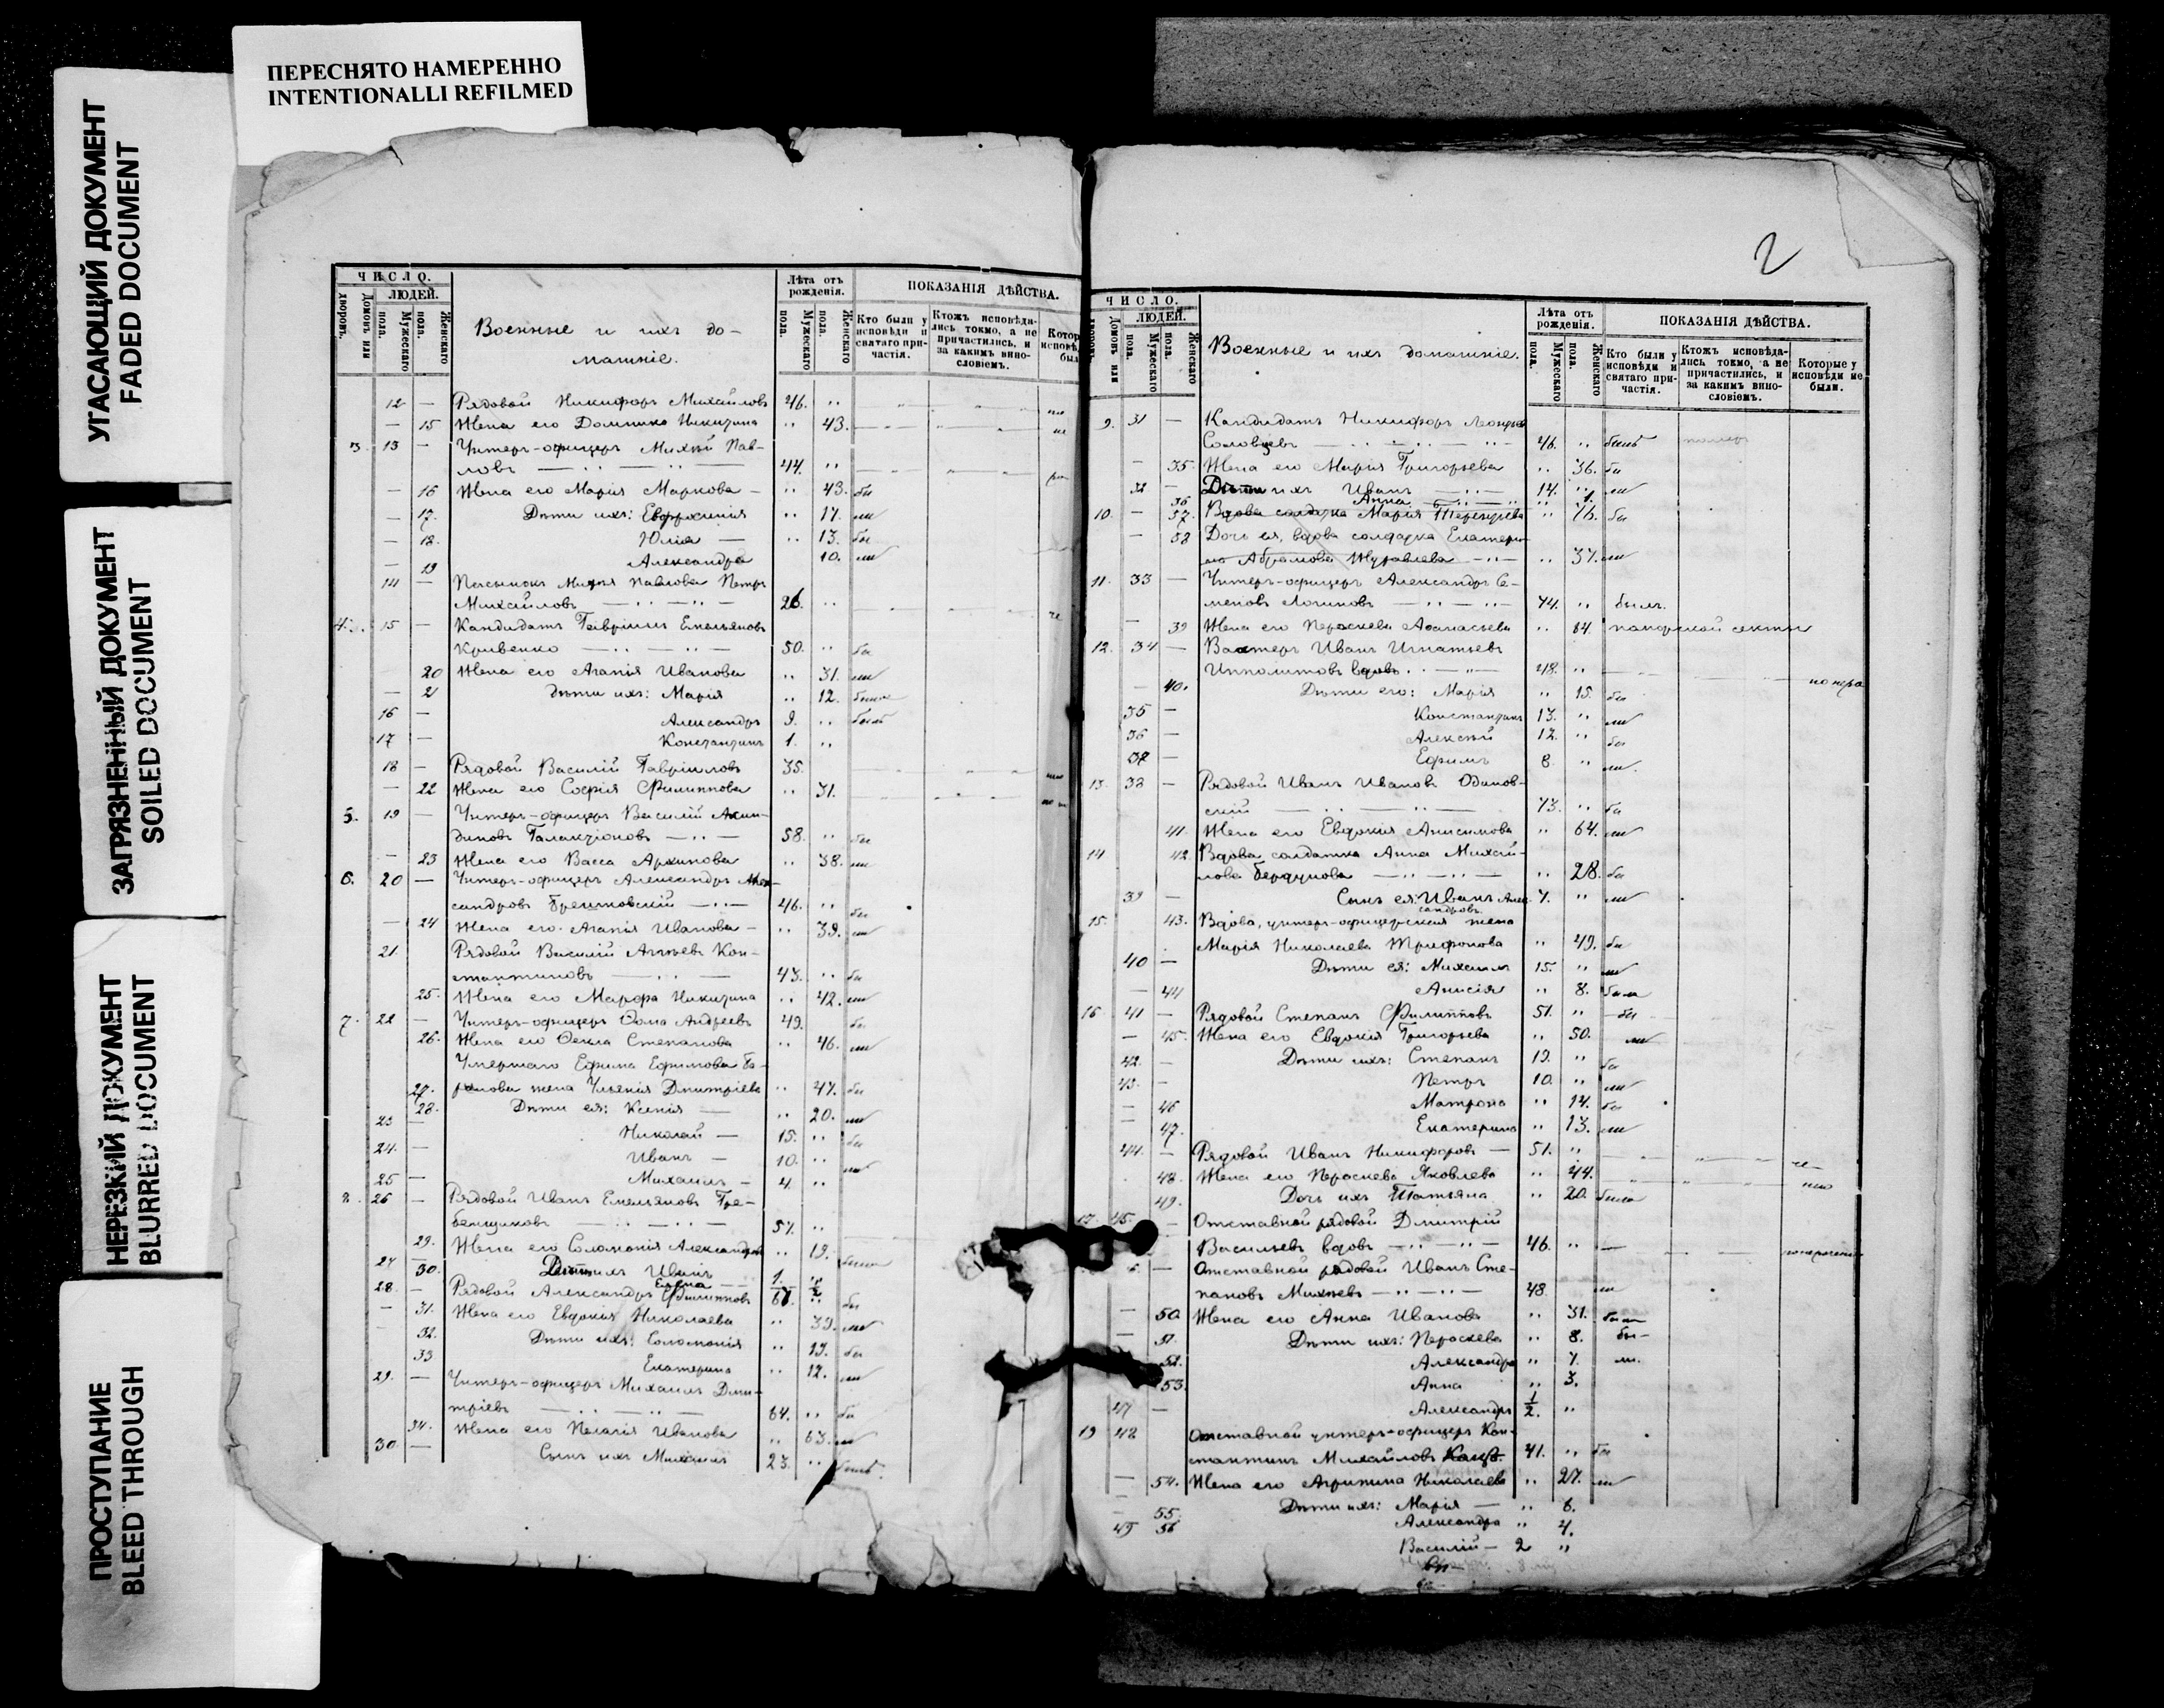 ПЕРЕСНЯТО НАМЕРЕННО
INTENTIONALLI REFILMED
УГАСАЮЩИЙ ДОКУМЕНТ
FADED DOCUMENT
ЗАГРЯЗНЕННЫЙ ДОКУМЕНТ
SOILED DOCUMENT
НЕРЕЗКИЙ ДОКУМЕНТ
BLURRED DOCUMENT
ПРОСТУПАНИЕ
BLEED THROUGH
ЧИСЛО.
ЛЮДЕЙ.
Домовъ или дворовъ.
Мужескаго пола.
Женскаго пола.
Военные и ихъ до-
машніе.
Лѣта отъ рожденія.
Мужескаго пола.
Женскаго пола.
ПОКАЗАНІЯ ДѢЙСТВА.
Кто были у исповѣди и святаго при-частія.
Ктожъ исповѣда-лись токмо, а не причастились, и за какимъ вино-словіемъ.
12 — Рядовой Никифоръ Михайловъ 46. "
— 15 Жена его Домника Никитина " 43.
3. 13 — Унтеръ-офицеръ Михѣй Пав-
ловъ 44. "
— 16 Жена его Марія Маркова — " 43. бы
— 17. Дѣти ихъ: Евфросинія " 17. ли
— 18. Юлія — " 13. бы
— 19 Александра 10. ли
14 — Пасынокъ Михѣя Павлова Петръ
Михайловъ 26. "
4. 15 — Кандидатъ Гавріилъ Емельяновъ
Кривенко 50. " бы
20 Жена его Агапія Иванова " 31. ли
— 21 дѣти ихъ: Марія " 12. была
16 — Александръ 9. " былъ
17 — Константинъ 1. "
18 — Рядовой Василій Гавріиловъ 35.
— 22 Жена его Софія Филиппова " 31.
5. 19 — Унтеръ-офицеръ Василій Акин-
диновъ Галактіоновъ 58. " бы
— 23 Жена его Васса Архипова " 38. ли
6. 20 — Унтеръ-офицеръ Александръ Алек-
сандровъ Брешковскій 46. " бы
— 24 Жена его Агапія Иванова — " 39. ли
21. Рядовой Василій Агѣевъ Кон-
стантиновъ 43. " бы
25. Жена его Марфа Никитина " 42. ли
7. 22 — Унтеръ-офицеръ Ѳома Андреевъ 49. бы
26. Жена его Ѳекла Степанова " 46. ли
Умершаго Ефима Ефимова Га-
27. жена Ульянія Дмитріева " 47. бы
28. Дѣти ея: Ксенія — " 20. ли
23 — Николай — 15. " бы
24. — Иванъ — 10. " ли
25 — Михаилъ — 4. "
8. 26 — Рядовой Иванъ Емельяновъ Гре-
бенщиковъ 57. "
29. Жена его Соломонія Александрова " 19.
27 Дѣти ихъ Иванъ 1. "
30. Елена
28. — Рядовой Александръ Филипповъ 61. " бы
— 31. Жена его Евдокія Николаева " 39. ли
32. Дѣти ихъ: Соломонія " 19. бы
33 Екатерина " 12. ли
29. — Унтеръ-офицеръ Михаилъ Дми-
тріевъ 64. " бы
34. Жена его Пелагія Иванова " 63. ли
30 — Сынъ ихъ Михаилъ 23. " былъ.
2
ЧИСЛО.
ЛЮДЕЙ.
Домовъ или дворовъ.
Мужескаго пола.
Женскаго пола.
Военные и ихъ домашніе.
Лѣта отъ рожденія.
Мужескаго пола.
Женскаго пола.
ПОКАЗАНІЯ ДѢЙСТВА.
Кто были у исповѣди и святаго при-частія.
Ктожъ исповѣда-лись токмо, а не причастились, и за какимъ вино-словіемъ.
Которые у исповѣди не были.
9. 31 — Кандидатъ Никифоръ
Соловцевъ 46. " былъ
— 35. Жена его Марія Григорьева " 36. бы
32 — Дѣти ихъ Иванъ 14. " ли
36 Анна " 1.
10. — 37. Вдова солдатка Марія Терентьева " 76. бы
— 38 Дочь ея, вдова солдатка Екатери-
на Абрамова Журавлева " 37. ли
11. 33 — Унтеръ-офицеръ Александръ Се-
меновъ Логиновъ 74. " былъ.
— 39 Жена его Параскева Аѳанасьева " 64. поморской секты
12. 34 — Вахтеръ Иванъ Игнатьевъ
Ипполитовъ вдовъ. 48. "
— 40. Дѣти его: Марія " 15. бы
35 — Константинъ 13. " ли
36 — Алексѣй 12. " бы
37 — Ефимъ 8. " ли.
13. 38 — Рядовой Иванъ Ивановъ Одинов-
скій 73. " бы
41. Жена его Евдокія Анисимова " 64. ли
14 42. Вдова солдатка Анна Михай-
лова Бердунова " 28. бы
39 — Сынъ ея: Иванъ Алек- 7. " ли
сандровъ.
15. 43. Вдова, унтеръ-офицерская жена
Марія Николаева Трифонова " 49. бы
40 — Дѣти ея: Михаилъ 15. " ли
— 44 Анисія " 8. была
16 41 — Рядовой Степанъ Филипповъ 51. " бы
— 45. Жена его Евдокія Григорьева " 50. ли
42. — Дѣти ихъ: Степанъ 19. " бы
43. — Петръ 10. " ли
— 46 Матрона " 14. бы
— 47. Екатерина " 13. ли
44. — Рядовой Иванъ Никифоровъ — 51. "
48. Жена его Параскева Яковлева " 44.
49. Дочь ихъ Татьяна " 20. была
17 45. — Отставной рядовой Дмитрій
Васильевъ вдовъ 46. "
— Отставной рядовой Иванъ Сте-
пановъ Михѣевъ 48.
— 50. Жена его Анна Иванова " 31.
— 51. Дѣти ихъ: Параскева " 8. бы-
52. Александра " 7. ли.
53. Анна " 3.
47 — Александръ 1/2. "
19 48 Отставной унтеръ-офицеръ Кон-
стантинъ Михайловъ 41. " бы
— 54. Жена его Агрипина Николаева " 27. ли
— 55. Дѣти ихъ: Марія — " 6.
56 Александра " 4.
49 Василій — 2 "